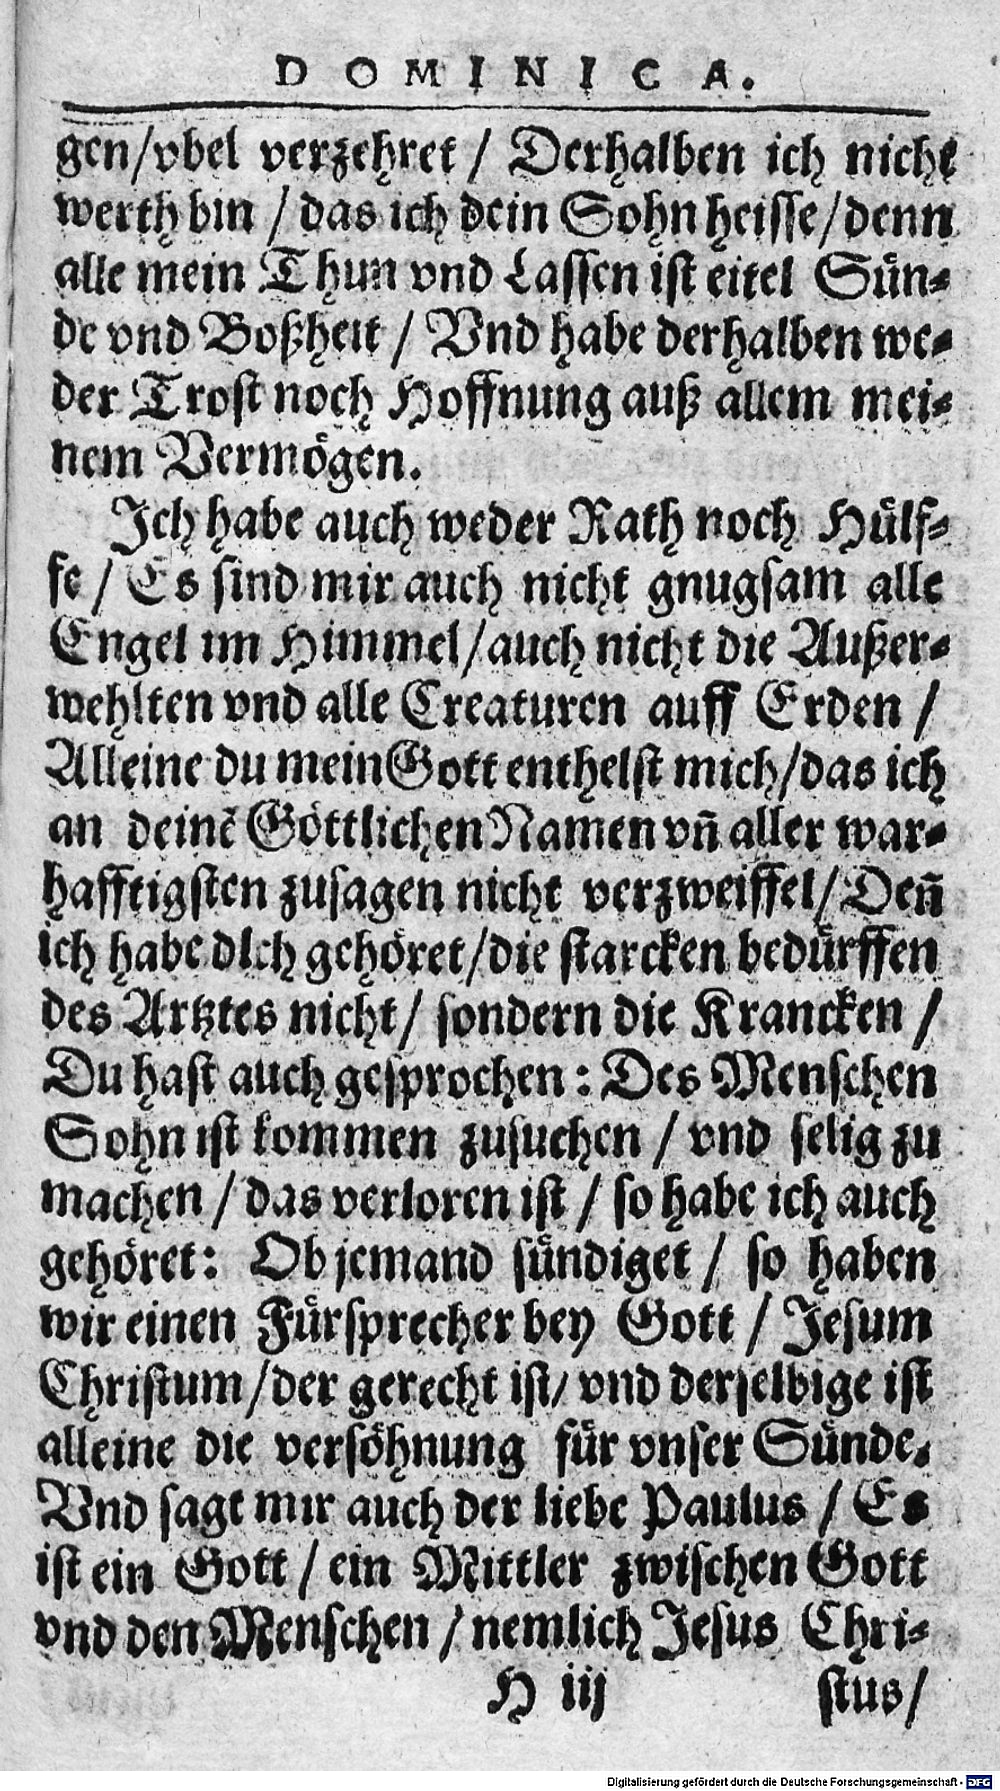 DOMINICA.
gen/vbel verzehret / Derhalben ich nicht
werth bin / das ich dein Sohn heisse/denn
alle mein Thun vnd Lassen ist eitel Sün-
de vnd Boßheit / Vnd habe derhalben we-
der Trost noch Hoffnung auß allem mei-
nem Vermögen.
Ich habe auch weder Rath noch Hülf-
fe / Es sind mir auch nicht gnugsam alle
Engel im Himmel/auch nicht die Außer-
wehlten vnd alle Creaturen auff Erden /
Alleine du mein Gott enthelst mich/das ich
an deinē Göttlichen Namen vñ aller war-
hafftigsten zusagen nicht verzweiffel/Deñ
ich habe dich gehöret/die starcken bedürffen
des Artztes nicht/ sondern die Krancken /
Du hast auch gesprochen: Des Menschen
Sohn ist kommen zusuchen / vnd selig zu
machen / das verloren ist / so habe ich auch
gehöret: Ob jemand sündiget / so haben
wir einen Fürsprecher bey Gott / Jesum
Christum/der gerecht ist/ vnd derselbige ist
alleine die versöhnung für vnser Sünde.
Vnd sagt mir auch der liebe Paulus / Es
ist ein Gott / ein Mittler zwischen Gott
vnd den Menschen / nemlich Jesus Chri-
H iij stus/
Digitalisierung gefördert durch die Deutsche Forschungsgemeinschaft - DFG